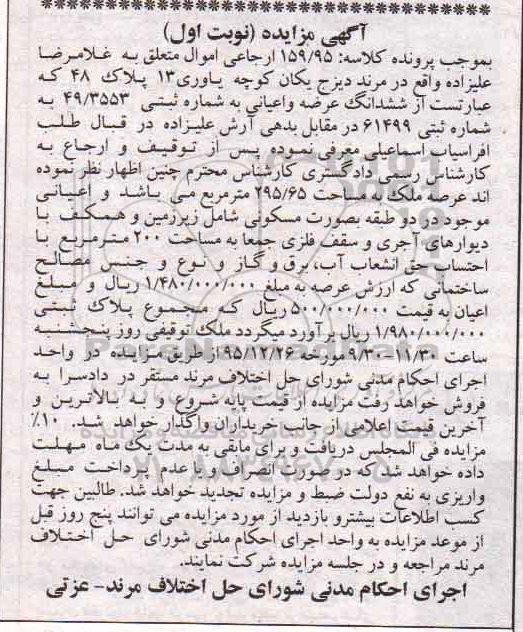 آگهی مزایده (نوبت اول)
بموجب پرونده کلاسه: ۱۵۹/۹۵ ارجاعی اموال متعلق به غلامرضا
علیزاده واقع در مرند دیزج یکان کوچه یاوری۱۳ پلاک ۴۸ که
عبارتست از ششدانگ عرصه واعیانی به شماره ثبتی ۴۹/۳۵۵۳ به
شماره ثبتی ۶۱۴۹۹ در مقابل بدهی آرش علیزاده در قبال طلب
افراسیاب اسماعلی معرفی نموده پس از توقیف و ارجاع به
کارشناس رسمی دادگستری کارشناس محترم چنین اظهار نظر نموده
اند عرصه ملک به مساحت ۲۹۵/۶۵ مترمربع می باشد و اعیانی
موجود در دو طبقه بصورت مسکونی شامل زیرزمین و همکف با
دیوارهای آجری و سقف فلزی جمعا به مساحت ۲۰۰ مترمربع با
احتساب حق انشعاب آب، برق و گاز و نوع و جنس مصالح
ساختمانی که ارزش عرصه به مبلغ ۱/۴۸۰/۰۰۰/۰۰۰ ریال و مبلغ
اعیان به قیمت ۵۰۰/۰۰۰/۰۰۰ ریال که مجموع پلاک ثبتی
۱/۹۸۰/۰۰۰/۰۰۰ ریال برآورد میگردد ملک توقیفی روز پنجشنبه
ساعت ۱۱/۳۰-۹/۳۰ مورخه ۹۵/۱۲/۲۶ از طریق مزایده در واحد
اجرای احکام مدنی شورای حل اختلاف مرند مستقر در دادسرا به
فروش خواهد رفت مزایده از قیمت پایه شروع و به بالاترین و
آخرین قیمت اعلامی از جانب خریداران واگذار خواهد شد. ۱۰٪
مزایده فی المجلس دریافت و برای مابقی به مدت یک ماه مهلت
داده خواهد شد که در صورت انصراف و یا عدم پرداخت مبلغ
واریزی به نفع دولت ضبط و مزایده تجدید خواهد شد. طالبین جهت
کسب اطلاعات بیشتر و بازدید از مورد مزایده می توانند پنج روز قبل
از موعد مزایده به واحد اجرای احکام مدنی شورای حل اختلاف
مرند مراجعه و در جلسه مزایده شرکت نمایند.
اجرای احکام مدنی شورای حل اختلاف مرند- عزتی